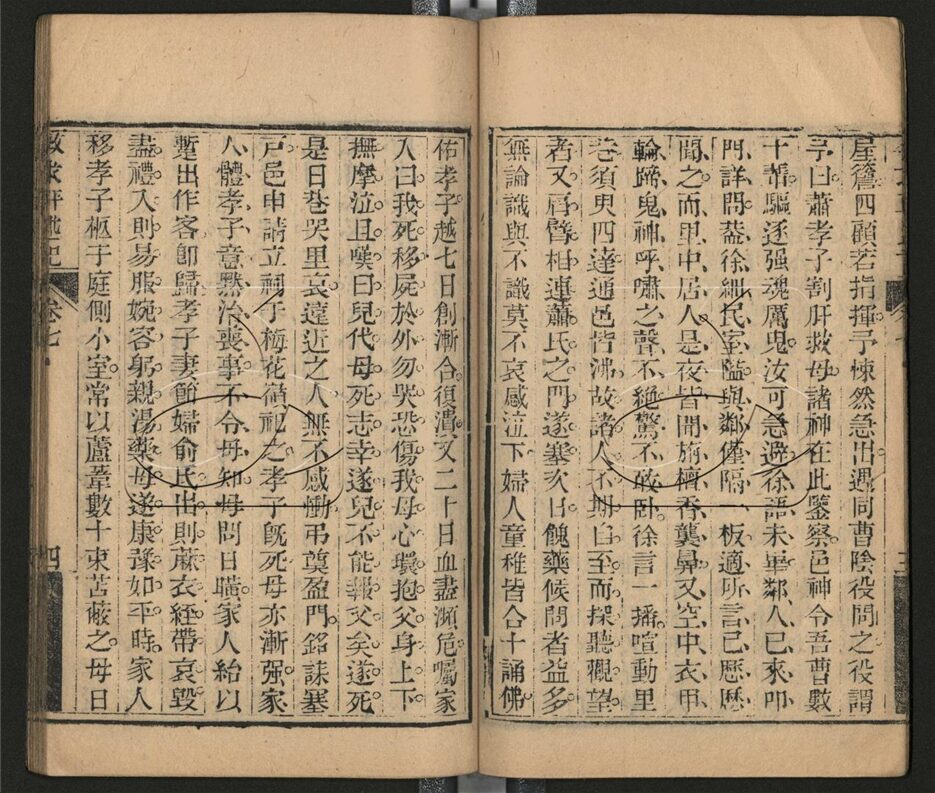 屋簷四顧若指揮予悚然急出遇同曹陰役問之役謂
予曰蕭孝子割肝救母諸神在此鑒察邑神令吾曹數
十輩驅逐强魂厲鬼汝可急避徐語未畢鄰人已來叩
門詳問葢徐細民室隘與鄰僅隔一板適所言已歷歷
聞之而里中居人是夜皆聞旃檀香龔鼻又空中衣甲
輪蹄鬼神呼嘯之聲不絕驚不敢卧徐言一播喧動里
巷須臾四達通邑皆沸故諸人不期自至而探聽觀望
者又肩臂相連蕭氏之門遂塞次日餽藥候問者益多
無論識與不識莫不哀感泣下婦人童稚皆合十誦佛
佑孝子越七日創漸合復潰又二十日血盡瀕危囑家
人曰我死移屍於外勿哭恐傷我母心環抱父身上下
撫摩泣且嘆曰兒代母死志幸遂兒不能報父矣遂死
是日巷哭里哀遠近之人無不感慟弔奠盈門銘誄塞
戸邑申請立祠于梅花嶺祀之孝子旣死母亦漸强家
人體孝子意黙治喪事不令母知母問日䁔家人紿以
蹔出作客卽歸孝子妻節婦俞氏出則蔴衣絰帶哀毀
盡禮入則易服婉容躬親湯藥母遂康豫如平時家人
移孝子柩于庭側小室常以蘆葦數十束苫蔽之母日
卷七
四